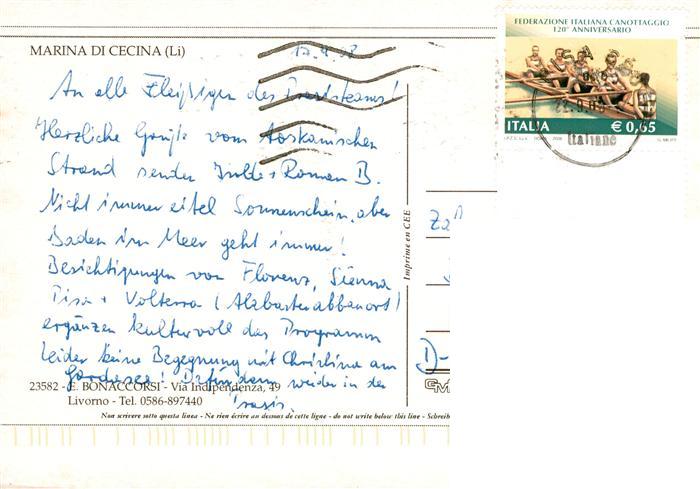 FEDERAZIONE ITALIANA CANOTTAGGIO
120° ANNIVERSARIO
ITALIA € 0,65
Italiane
MARINA DI CECINA (Li)
17.9.08
An alle Fleißigen des
Herzliche Grüße vom toskanischen
Strand senden + Roman B.
Nicht immer eitel Sonnenschein, aber
Baden im Meer geht immer!
Besichtigungen von Florenz, Sienna
Pisa + Volterra (Alabasterabbauort)
ergänzen kulturvoll das Programm
Leider keine Begegnung mit Christina am
Gardasee! Dafür dann wieder in der
Praxis.
Imprime en CEE
Za
D-
GM
23582 - E. BONACCORSI - Via Indipendenza, 49
Livorno - Tel. 0586-897440
Non scrivere sotto questa linea - Ne rien écrire au dessous de cette ligne - do not write below this line - Schreib